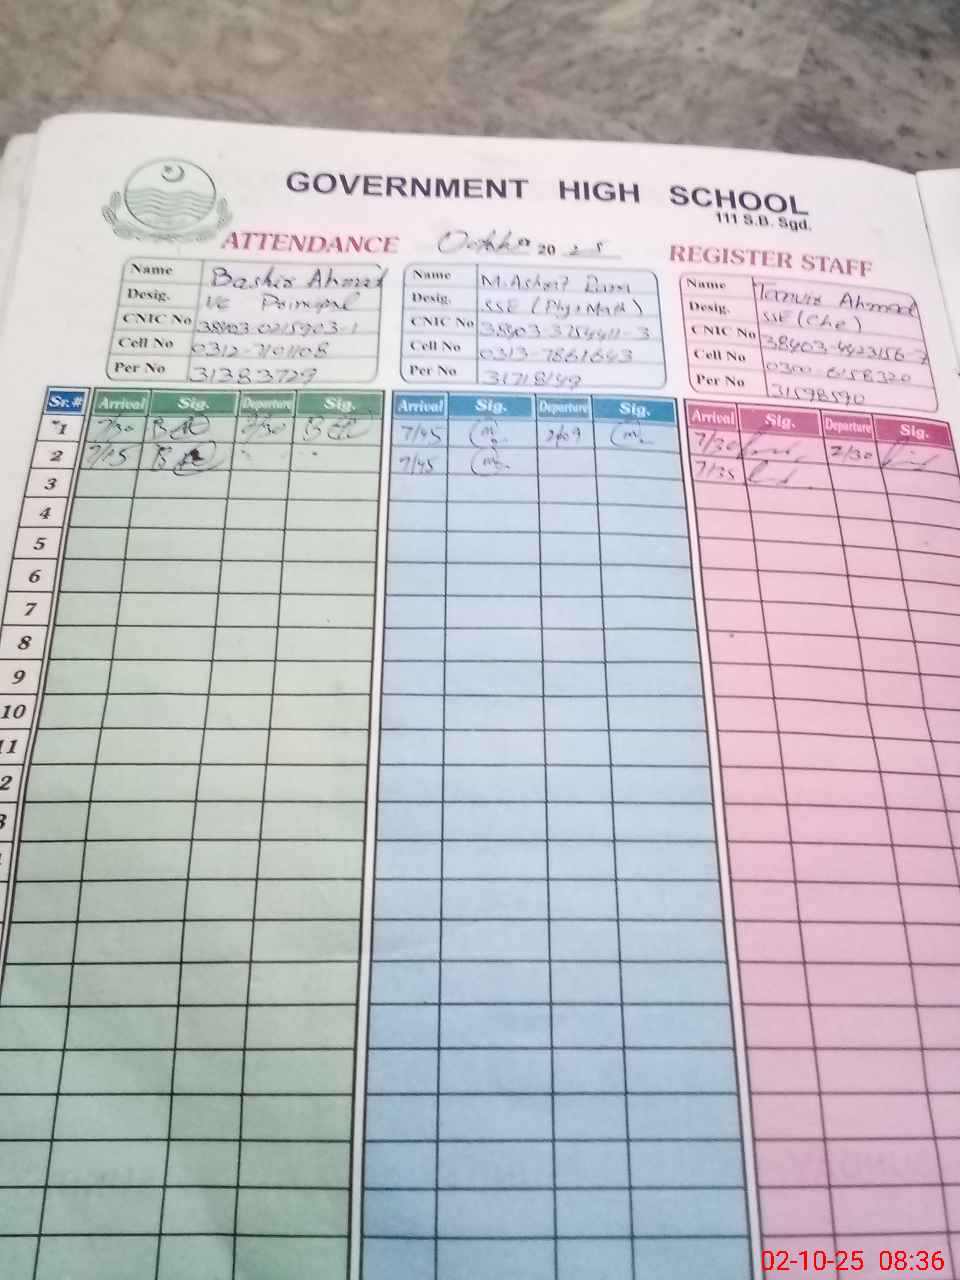 GOVERNMENT HIGH SCHOOL
111 S.B. Sgd.
ATTENDANCE October 2025 REGISTER STAFF
Name Bashir Ahmad
Desig. I/C Principal
CNIC No 38403-0215903-1
Cell No 0312-7101108
Per No 31383729
Name M.Ashraf
Desig. SSE (Phy, Math)
CNIC No 38403-3254411-3
Cell No 0313-7861643
Per No 31718149
Name Tanvir Ahmad
Desig. SSE (Che)
CNIC No 38403-4423156-7
Cell No 0300-6158320
Per No 31598590
Sr.# Arrival Sig. Departure Sig. Arrival Sig. Departure Sig. Arrival Sig. Departure Sig.
1 7/30 2/30 7/45 7/30 2/30
2 7/15 7/45 7/35
3
4
5
6
7
8
9
10
11
2
3
02-10-25 08:36